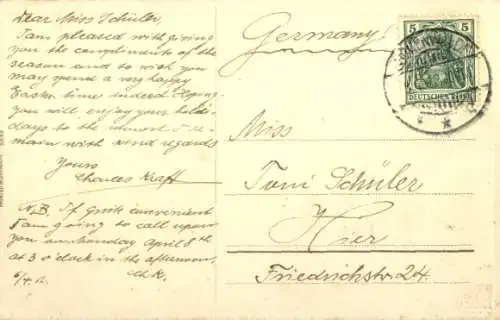 Dear Miss Schüler,
I am pleased with giving
you the compliments of the
season and to wish you
may spend a very happy
Easter time indeed. Hoping
you will enjoy your holi-
days to the utmost I re-
main with kind regards
Yours
Charles Kraft
N.B. If quite convenient
I am going to call upon
you on Monday April 8th
at 3 o'clock in the afternoon.
Ch.K.
6/4. 12.
Germany
5 5
DEUTSCHES REICH
Miss
Toni Schüler
Hier
Friedrichstr. 24